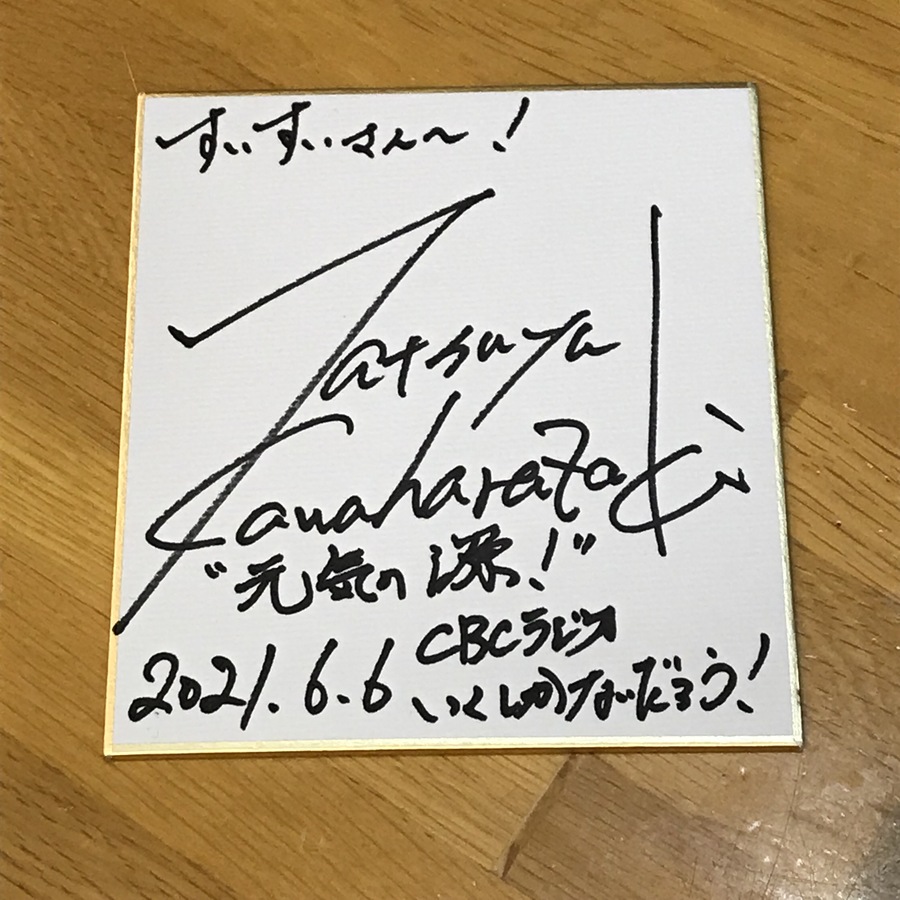 すいすいさんへ!
Tatsuya
Kawaharazaki
“元気の源!”
CBCラジオ
2021.6.6 いくしかないだろう!